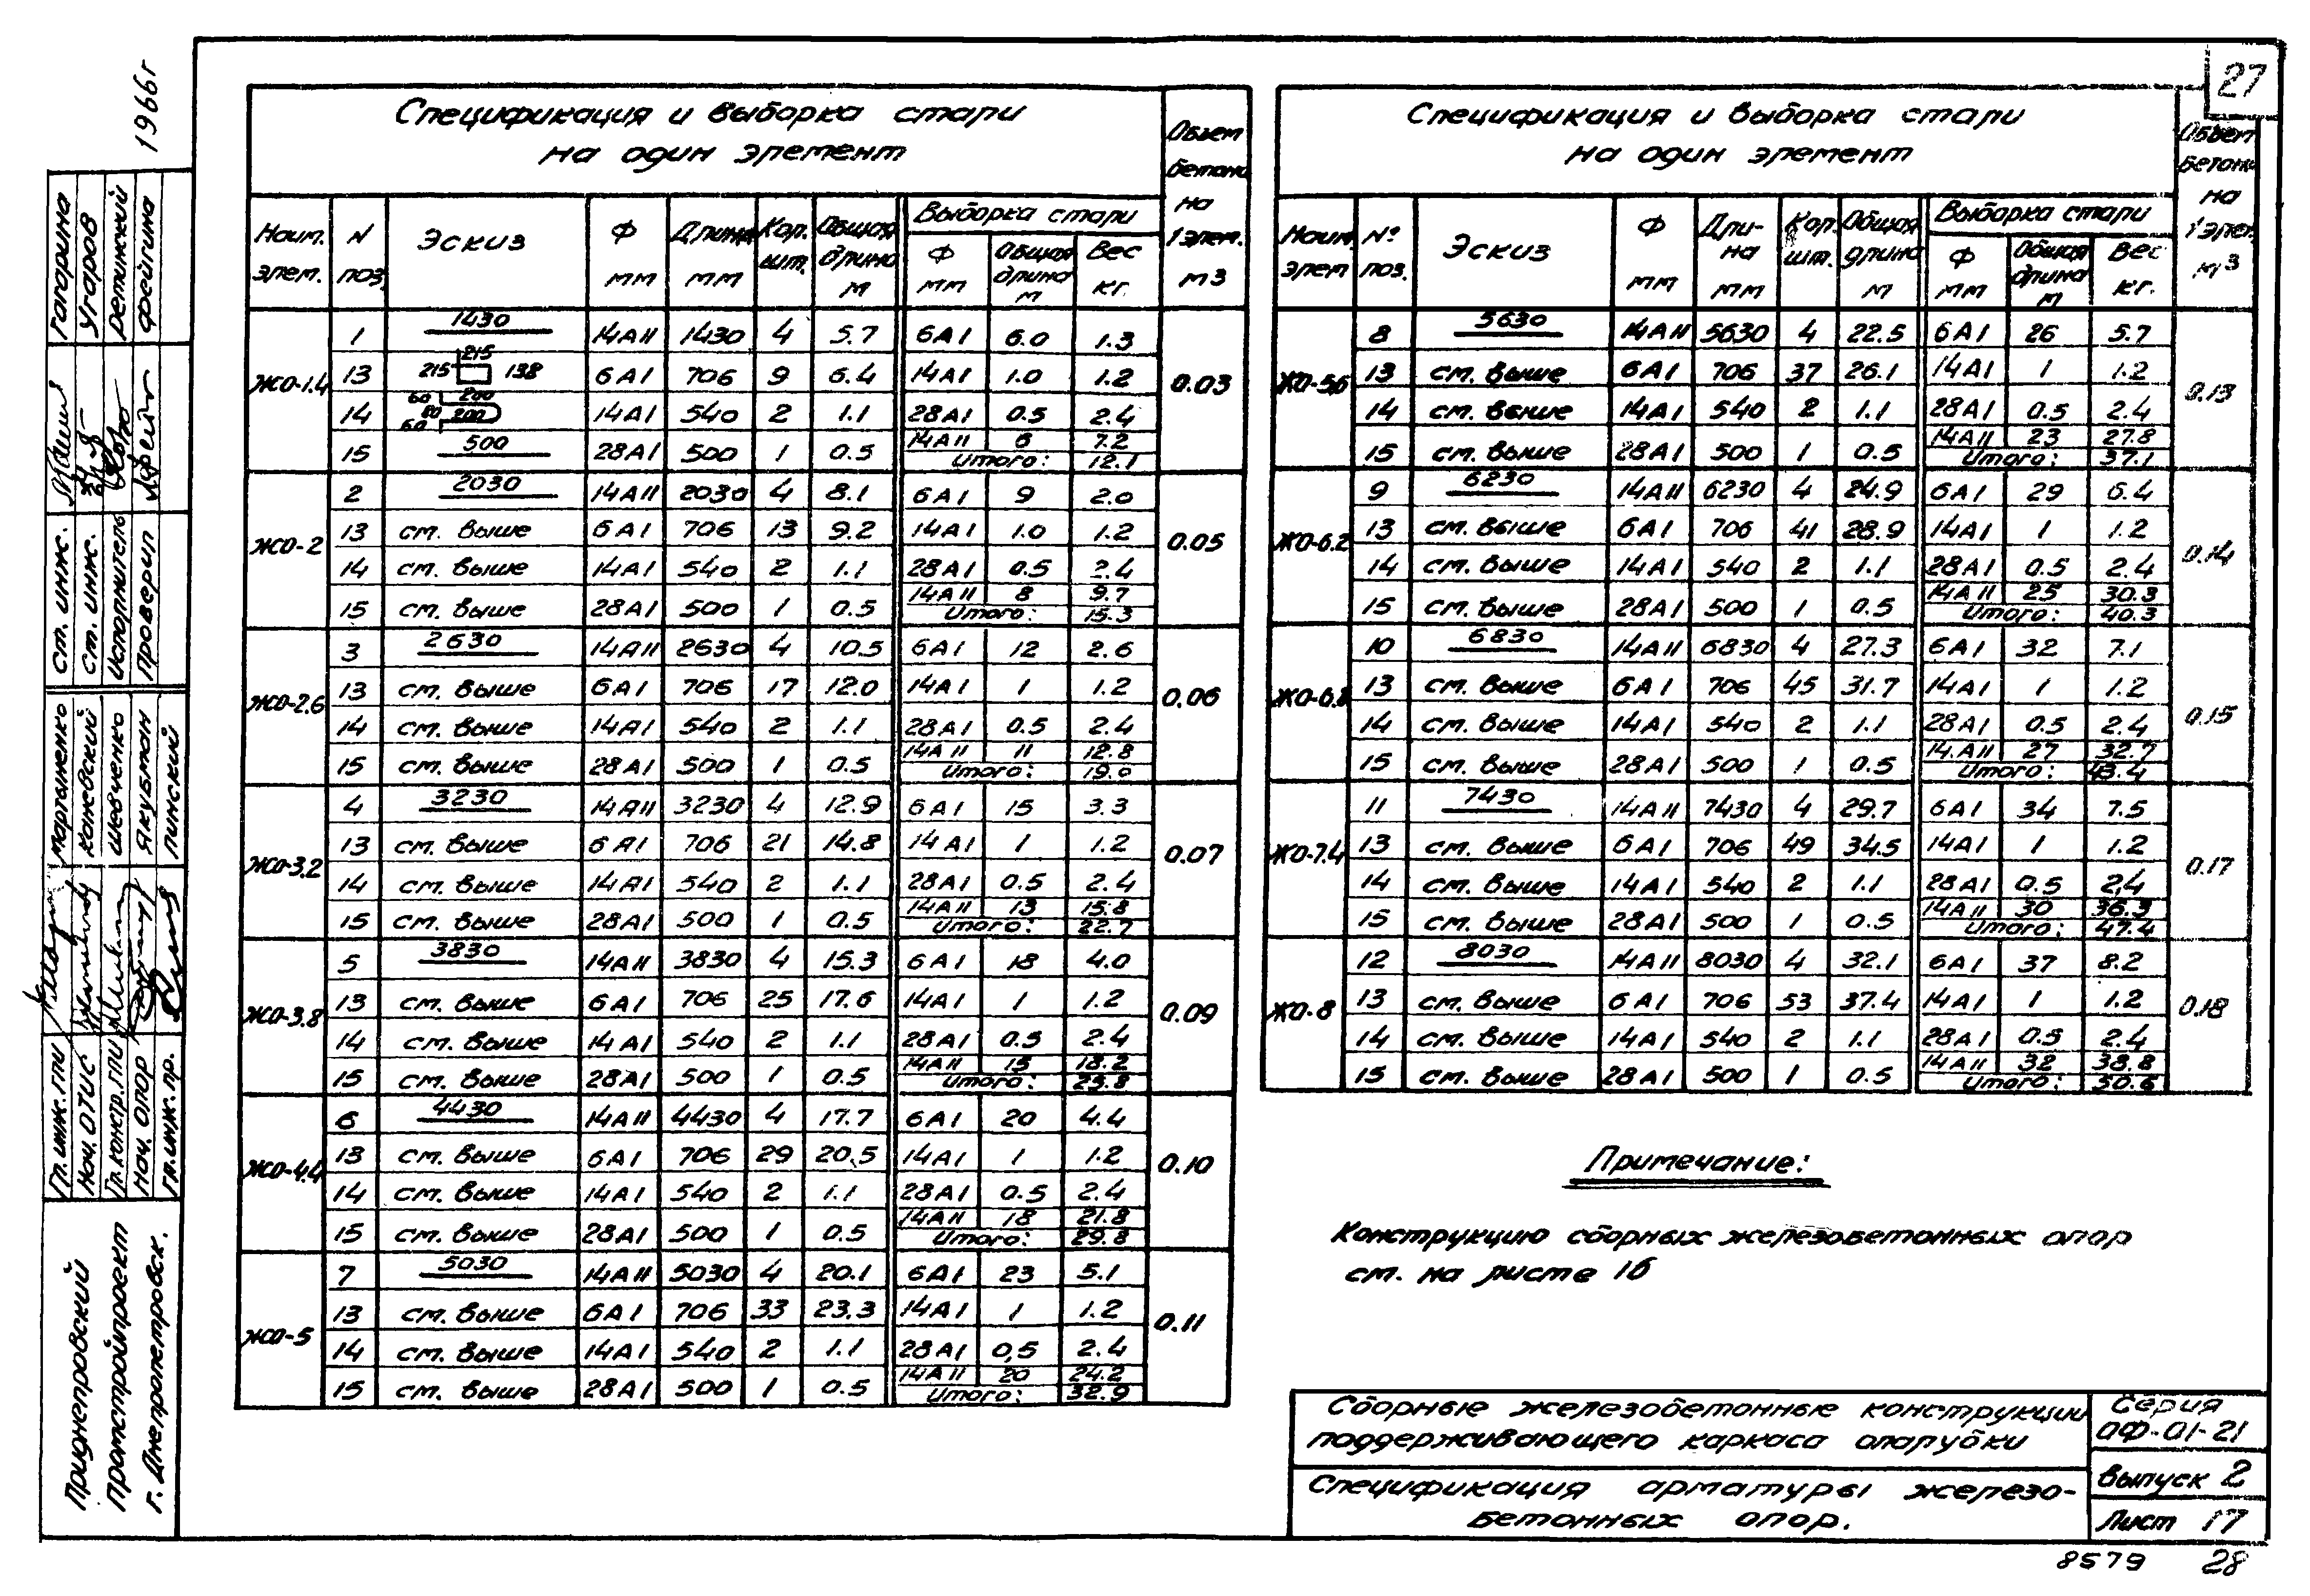 27
1966г
Спецификация и выборка стали
на один элемент
Объем бетона на 1 элем. м3
Наим. элем. | N поз. | Эскиз | Ф мм | Длина мм | Кол. шт. | Общая длина м | Выборка стали | Ф мм | Общая длина м | Вес кг.
ЖО-1.4 0.03
1 1430 14АII 1430 4 5.7 6АI 6.0 1.3
13 215 215 138 6АI 706 9 6.4 14АI 1.0 1.2
14 60 200 80 200 60 14АI 540 2 1.1 28АI 0.5 2.4
14АII 6 7.2
15 500 28АI 500 1 0.5 Итого: 12.1
ЖО-2 0.05
2 2030 14АII 2030 4 8.1 6АI 9 2.0
13 см. выше 6АI 706 13 9.2 14АI 1.0 1.2
14 см. выше 14АI 540 2 1.1 28АI 0.5 2.4
14АII 8 9.7
15 см. выше 28АI 500 1 0.5 Итого: 15.3
ЖО-2.6 0.06
3 2630 14АII 2630 4 10.5 6АI 12 2.6
13 см. выше 6АI 706 17 12.0 14АI 1 1.2
14 см. выше 14АI 540 2 1.1 28АI 0.5 2.4
14АII 11 12.8
15 см. выше 28АI 500 1 0.5 Итого: 19.0
ЖО-3.2 0.07
4 3230 14АII 3230 4 12.9 6АI 15 3.3
13 см. выше 6АI 706 21 14.8 14АI 1 1.2
14 см. выше 14АI 540 2 1.1 28АI 0.5 2.4
14АII 13 15.8
15 см. выше 28АI 500 1 0.5 Итого: 22.7
ЖО-3.8 0.09
5 3830 14АII 3830 4 15.3 6АI 18 4.0
13 см. выше 6АI 706 25 17.6 14АI 1 1.2
14 см. выше 14АI 540 2 1.1 28АI 0.5 2.4
14АII 15 18.2
15 см. выше 28АI 500 1 0.5 Итого: 25.8
ЖО-4.4 0.10
6 4430 14АII 4430 4 17.7 6АI 20 4.4
13 см. выше 6АI 706 29 20.5 14АI 1 1.2
14 см. выше 14АI 540 2 1.1 28АI 0.5 2.4
14АII 18 21.8
15 см. выше 28АI 500 1 0.5 Итого: 29.8
ЖО-5 0.11
7 5030 14АII 5030 4 20.1 6АI 23 5.1
13 см. выше 6АI 706 33 23.3 14АI 1 1.2
14 см. выше 14АI 540 2 1.1 28АI 0,5 2.4
14АII 20 24.2
15 см. выше 28АI 500 1 0.5 Итого: 32.9
Спецификация и выборка стали
на один элемент
Объем бетона на 1 элем. м3
Наим. элем | № поз. | Эскиз | Ф мм | Дли-на мм | Кол. шт. | Общая длина м | Выборка стали | Ф мм | Общая длина м | Вес кг.
ЖО-5.6 0.13
8 5630 14АII 5630 4 22.5 6АI 26 5.7
13 см. выше 6АI 706 37 26.1 14АI 1 1.2
14 см. выше 14АI 540 2 1.1 28АI 0.5 2.4
14АII 23 27.8
15 см. выше 28АI 500 1 0.5 Итого: 37.1
ЖО-6.2 0.14
9 6230 14АII 6230 4 24.9 6АI 29 6.4
13 см. выше 6АI 706 41 28.9 14АI 1 1.2
14 см. выше 14АI 540 2 1.1 28АI 0.5 2.4
14АII 25 30.3
15 см. выше 28АI 500 1 0.5 Итого: 40.3
ЖО-6.8 0.15
10 6830 14АII 6830 4 27.3 6АI 32 7.1
13 см. выше 6АI 706 45 31.7 14АI 1 1.2
14 см. выше 14АI 540 2 1.1 28АI 0.5 2.4
14.АII 27 32.7
15 см. выше 28АI 500 1 0.5 Итого: 43.4
ЖО-7.4 0.17
11 7430 14АII 7430 4 29.7 6АI 34 7.5
13 см. выше 6АI 706 49 34.5 14АI 1 1.2
14 см. выше 14АI 540 2 1.1 28АI 0.5 2,4
14АII 30 36.3
15 см. выше 28АI 500 1 0.5 Итого: 47.4
ЖО-8 0.18
12 8030 14АII 8030 4 32.1 6АI 37 8.2
13 см. выше 6АI 706 53 37.4 14АI 1 1.2
14 см. выше 14АI 540 2 1.1 28АI 0.5 2.4
14АII 32 38.8
15 см. выше 28АI 500 1 0.5 Итого: 50.6
Примечание:
Конструкцию сборных железобетонных опор
см. на листе 16
Сборные железобетонные конструкции
поддерживающего каркаса опалубки
Серия
ОФ-01-21
Спецификация арматуры железо-
бетонных опор.
Выпуск 2
Лист 17
8579 28
Ст. инж. Гагарина
Ст. инж. Угаров
Исполнитель
Проверил Фейгина
Гл. инж. ГПИ Мартыненко
Нач. ОТИС Каневский
Гл. констр. ГПИ Шевченко
Нач. ОПОР Якубман
Гл. инж. пр. Линский
Приднепровский
Промстройпроект
г. Днепропетровск.